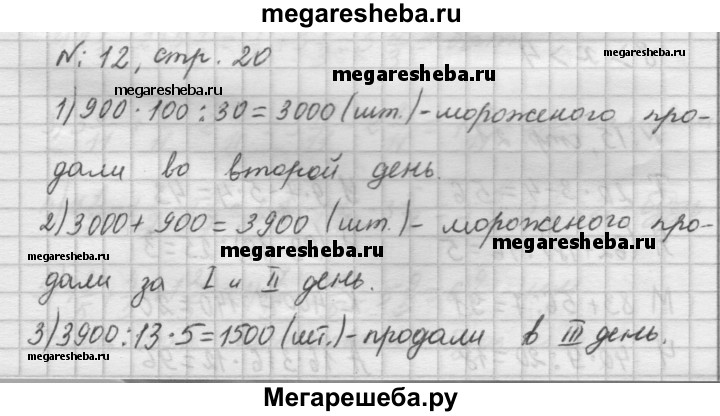 megaresheba.ru
№ 12, стр. 20
megaresheba.ru
megaresheba.ru
megaresheba.ru
1) 900 · 100 : 30 = 3000 (шт.) - мороженого про-
дали во второй день.
2) 3000 + 900 = 3900 (шт.) - мороженого про-
megaresheba.ru
megaresheba.ru
megaresheba.ru
дали за I и II день.
3) 3900 : 13 · 5 = 1500 (шт.) - продали в III день.
megaresheba.ru
Мегарешеба.ру